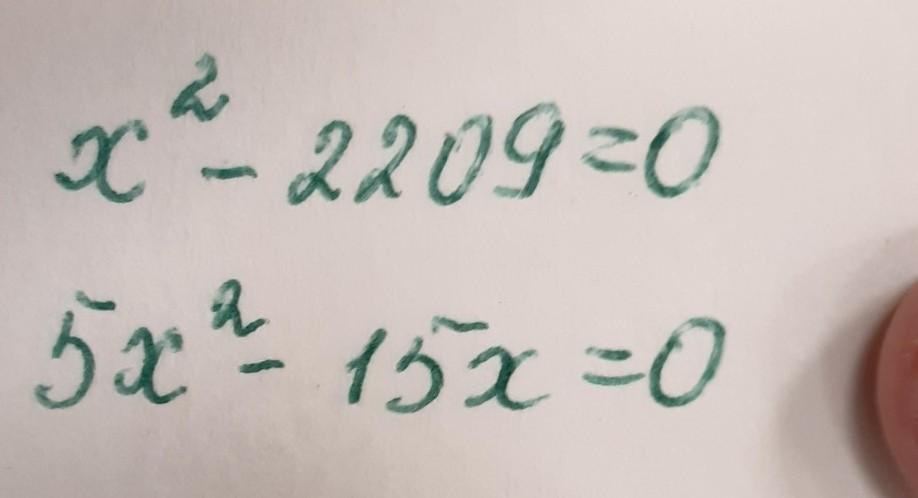 x² - 2209=0
5x² - 15x=0